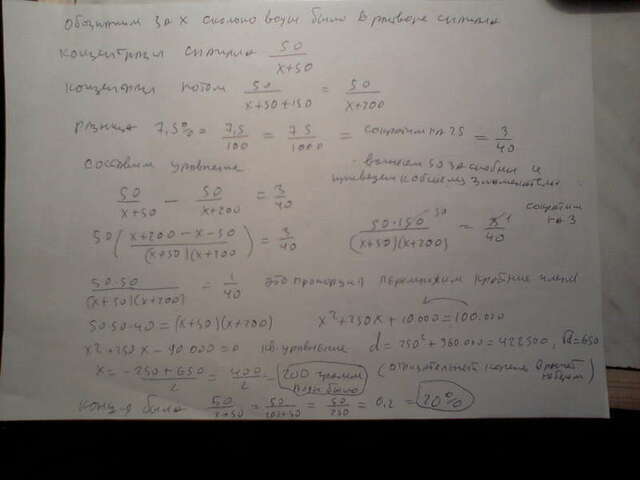 Обозначим за x сколько воды было в растворе сначала
концентрация сначала 50/(x+50)
концентрация потом 50/(x+50+150) = 50/(x+200)
разница 7,5% = 7,5/100 = 75/1000 = сократим на 25 = 3/40
составим уравнение - вынесем 50 за скобки и
приведем к общему знаменателю
50/(x+50) - 50/(x+200) = 3/40
50((x+200-x-50)/((x+50)(x+200))) = 3/40 50·150 50/((x+50)(x+200)) = 3 1/40 сократим на 3
50·50/((x+50)(x+200)) = 1/40 это пропорция перемножим крайние члены
50·50·40=(x+50)(x+200) x²+250x+10.000=100.000
x²+250x-90.000=0 кв. уравнение d=250²+360000=422500, √d=650
x=(-250+650)/2=400/2=200 грамм воды было (отрицательный корень
конц-я было 50/(x+50)=50/(200+50)=50/250=0,2=20%